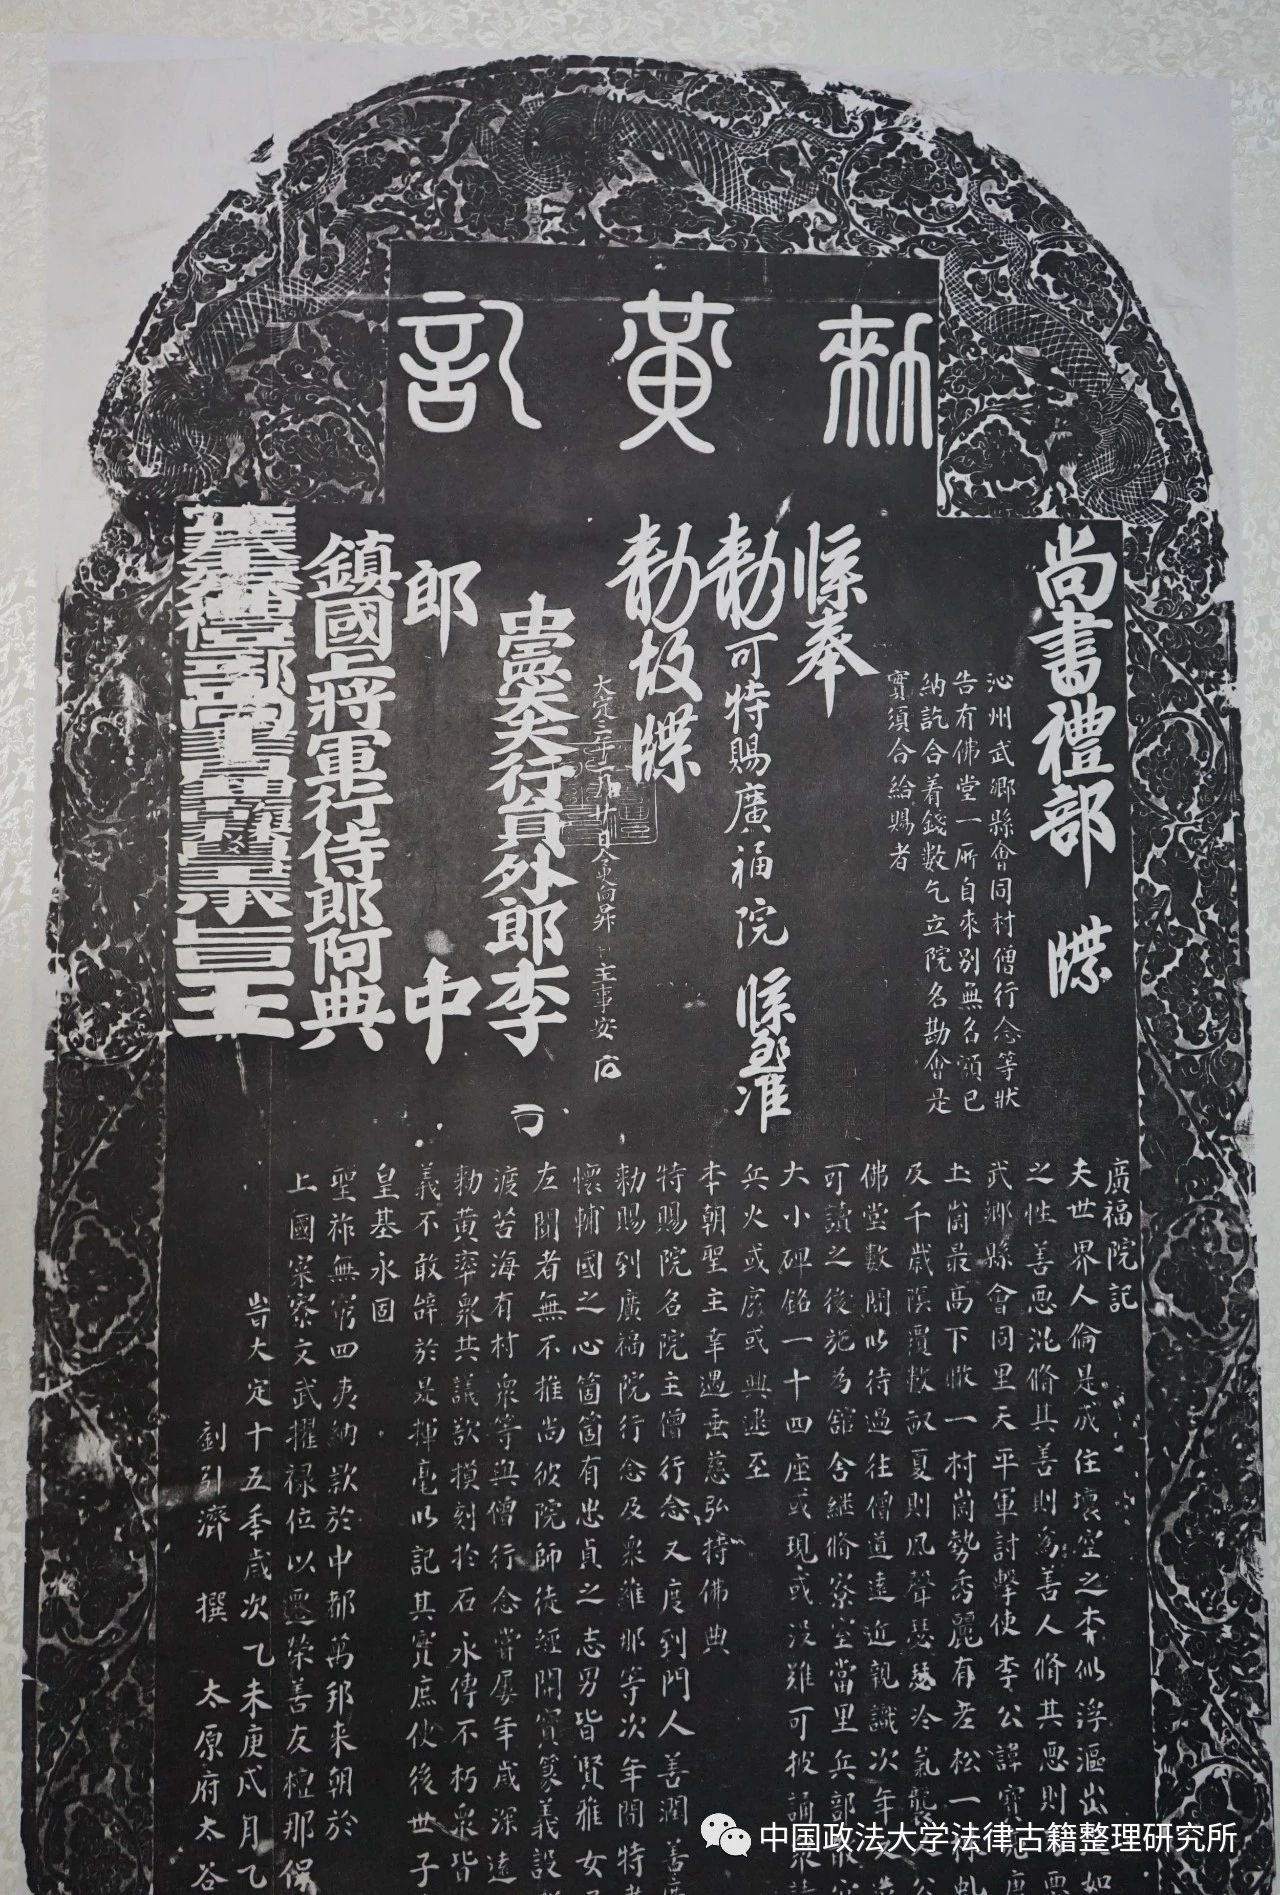 勑黃記
尚書禮部 牒
沁州武鄉縣會同村僧行念等狀
告有佛堂一所自來別無名額已
納訖合着錢數乞立院名勘會是
實須合給賜者
牒奉
勅可特賜廣福院牒至准
勅故牒
大定三年 月廿 日令 向昇 主事安
中憲大夫行員外郎李
郎中
鎮國上將軍行侍郎阿典
禮部尚書 王
廣福院記
夫世界人倫是成住壞空之本似浮漚出
之性善惡混脩其善則為善人脩其惡則
武鄉縣會同里天平軍討擊使李公諱寶
土崗最高下 一村崗勢秀麗有老松一
及千歲蔭覆數畝夏則風聲瑟瑟冷氣
佛堂數間以待過往僧道遠近親識次年
可讀之後施為舘舍継脩寮室當里兵部
大小碑銘一十四座或現或沒雖可披誦
兵火或廢或興逮至
本朝聖主幸遇垂慈弘持佛典
特賜院名院主僧行念又度到門人善潤善
勅賜到廣福院行念及衆維那等次年間特
懷輔國之心箇箇有忠貞之志男皆賢雅女
左閭者無不推尚彼院師徒經開實篆義設
渡苦海有村衆等與僧行念嘗屢年歲深遠
勅黃率衆共議欲模刻於石永傳不朽衆皆
義不敢辝於是揮毫以記其實庶使後世子
皇基永固
聖祚無窮四夷納欵於中都萬邦来朝於
上國寀寮文武擢禄位以遷榮善友檀那保
旹大定十五年歲次乙未庚戌月乙
劉引濟 撰 太原府太谷
中国政法大学法律古籍整理研究所